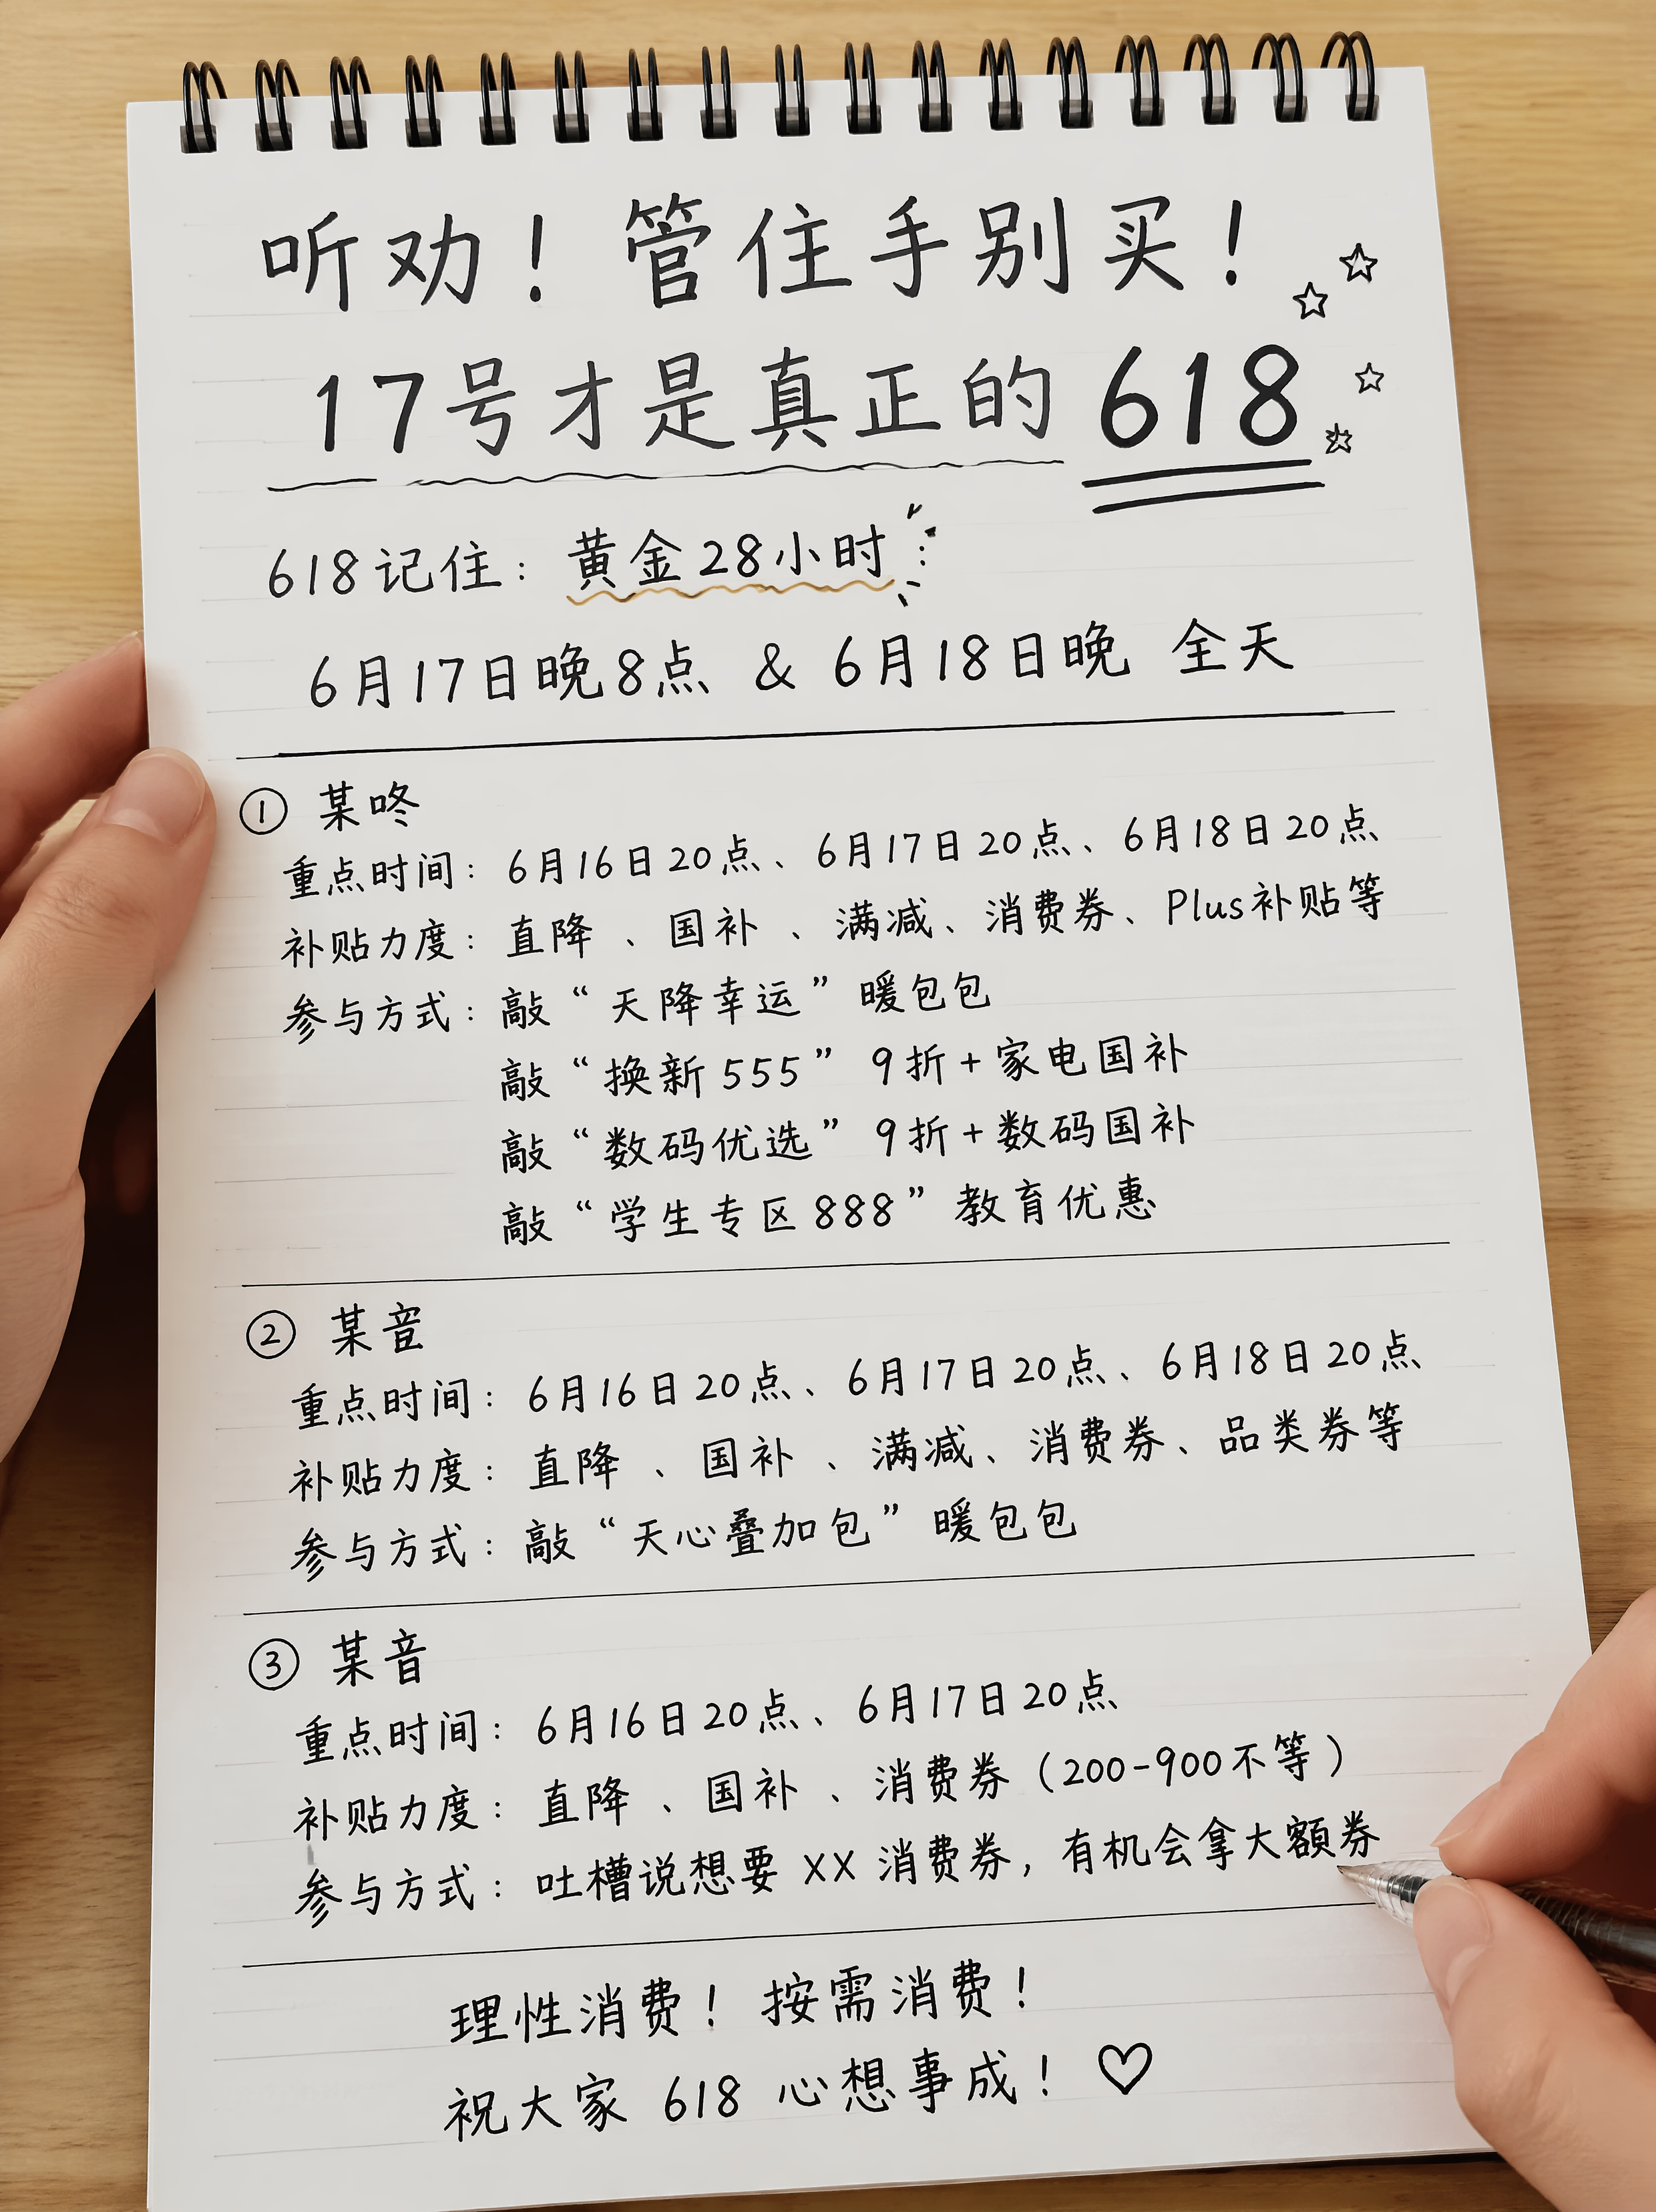 听劝！管住手别买！
17号才是真正的618
618记住：黄金28小时
6月17日晚8点 & 6月18日晚 全天
① 某咚
重点时间：6月16日20点、6月17日20点、6月18日20点
补贴力度：直降、国补、满减、消费券、Plus补贴等
参与方式：敲“天降幸运”暖包包
敲“换新555”9折+家电国补
敲“数码优选”9折+数码国补
敲“学生专区888”教育优惠
② 某音
重点时间：6月16日20点、6月17日20点、6月18日20点
补贴力度：直降、国补、满减、消费券、品类券等
参与方式：敲“天心叠加包”暖包包
③ 某音
重点时间：6月16日20点、6月17日20点
补贴力度：直降、国补、消费券（200-900不等）
参与方式：吐槽说想要 XX 消费券，有机会拿大额券
理性消费！按需消费！
祝大家 618 心想事成！♡